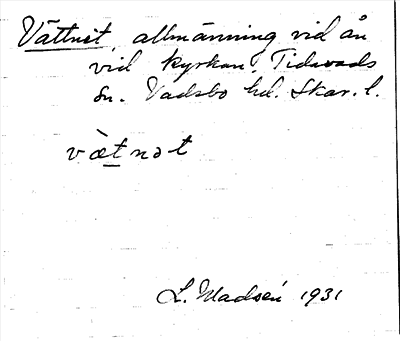 Vättnet, allmänning vid ån
vid kyrkan, Tidavads
sn. Vadsbo hd. Skar. l.
v&#x00E6;̀tnət
L. Madsén 1931